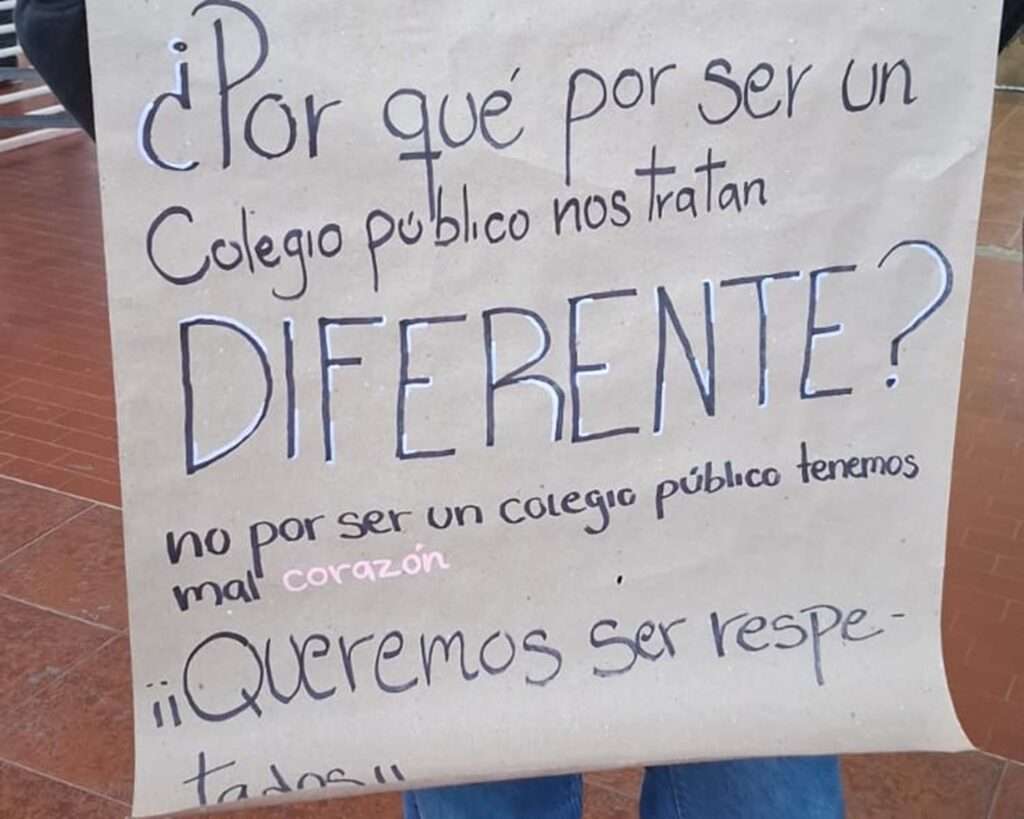 ¿Por qué por ser un
Colegio público nos tratan
DIFERENTE?
no por ser un colegio público tenemos
mal corazón
¡¡Queremos ser respe-
tados!!